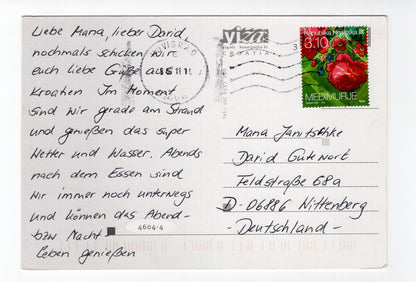 Liebe Mana, lieber David,
nochmals schicken wir
euch liebe Grüße aus
Kroatien Im Moment
sind wir gerade am Strand
und genießen das super
Wetter und Wasser. Abends
nach dem Essen sind
wir immer noch unterwegs
und können das Abend-
bzw Nacht
leben genießen
4604-4
VIŠGRAD
CROATIA
Republika Hrvatska
3.10
MEĐIMURJE
Mana Janitschke
David Gutewort
Feldstraße 68a
D-06886 Wittenberg
-Deutschland-